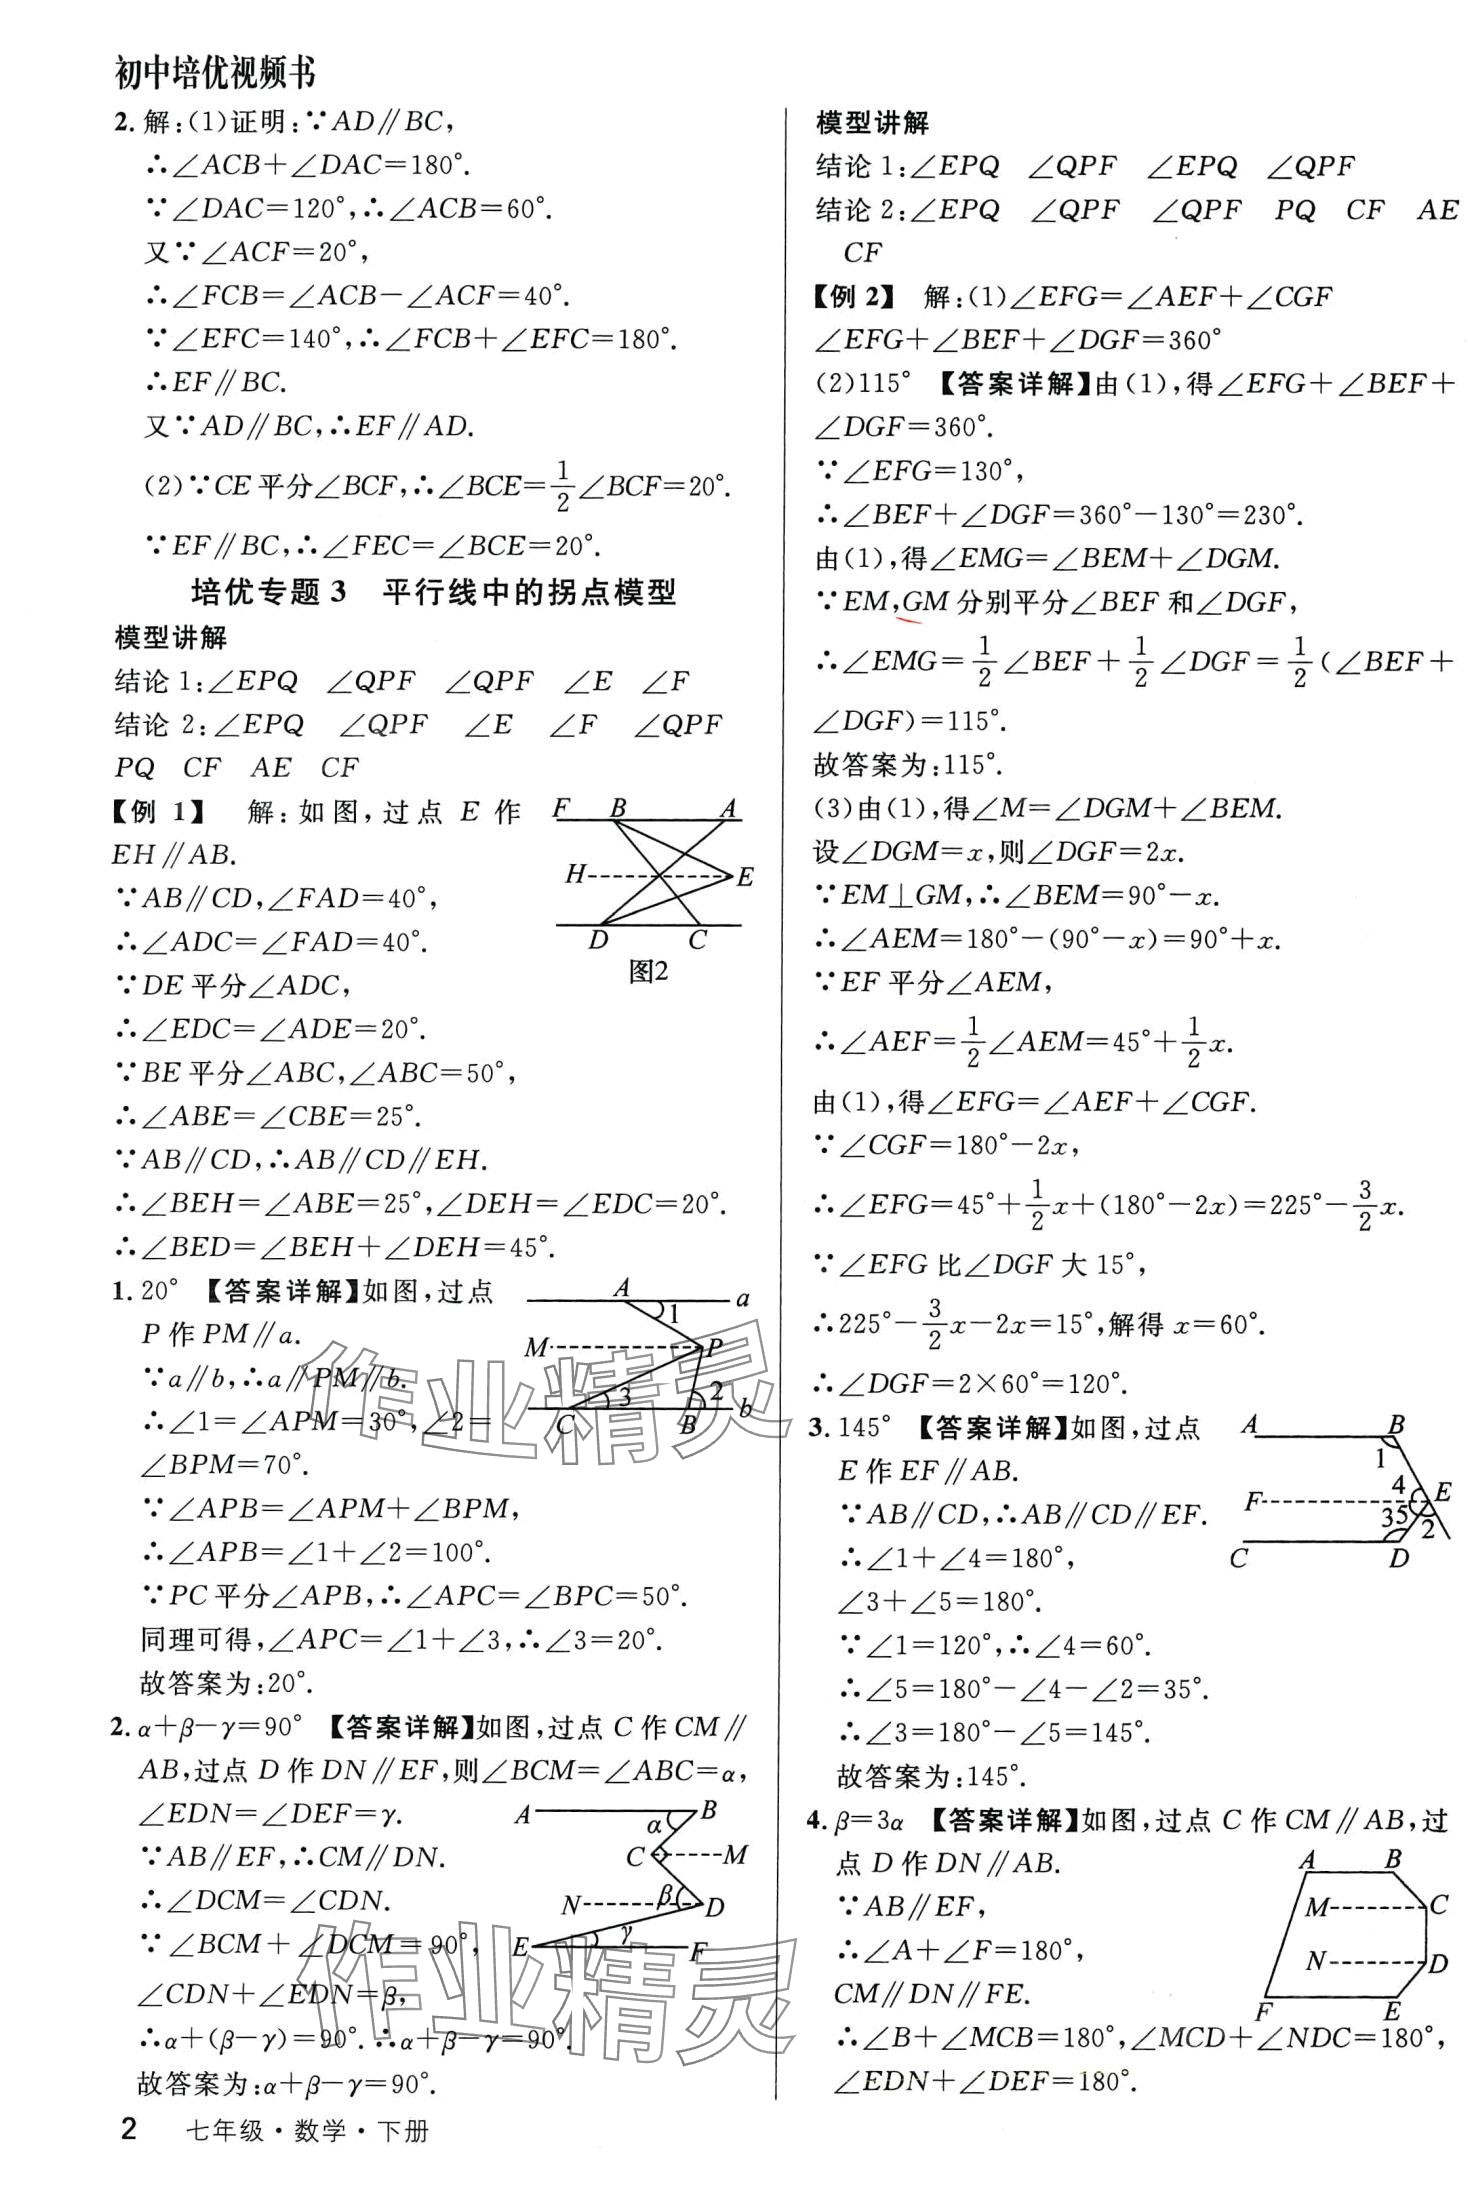 初中培优视频书
2. 解:(1)证明:∵AD∥BC,
∴∠ACB+∠DAC=180°.
∵∠DAC=120°,∴∠ACB=60°.
又∵∠ACF=20°,
∴∠FCB=∠ACB-∠ACF=40°.
∵∠EFC=140°,∴∠FCB+∠EFC=180°.
∴EF∥BC.
又∵AD∥BC,∴EF∥AD.
(2)∵CE平分∠BCF,∴∠BCE=1/2∠BCF=20°.
∵EF∥BC,∴∠FEC=∠BCE=20°.
培优专题 3 平行线中的拐点模型
模型讲解
结论 1:∠EPQ ∠QPF ∠QPF ∠E ∠F
结论 2:∠EPQ ∠QPF ∠E ∠F ∠QPF
PQ CF AE CF
【例 1】 解:如图,过点 E 作
EH∥AB.
∵AB∥CD,∠FAD=40°,
∴∠ADC=∠FAD=40°.
∵DE平分∠ADC,
∴∠EDC=∠ADE=20°.
∵BE平分∠ABC,∠ABC=50°,
∴∠ABE=∠CBE=25°.
∵AB∥CD,∴AB∥CD∥EH.
∴∠BEH=∠ABE=25°,∠DEH=∠EDC=20°.
∴∠BED=∠BEH+∠DEH=45°.
F B A
H E
D C
图2
1. 20° 【答案详解】如图,过点
P作PM∥a.
∵a∥b,∴a∥PM∥b.
∴∠1=∠APM=30°,∠2=
∠BPM=70°.
∵∠APB=∠APM+∠BPM,
∴∠APB=∠1+∠2=100°.
∵PC平分∠APB,∴∠APC=∠BPC=50°.
同理可得,∠APC=∠1+∠3,∴∠3=20°.
故答案为:20°.
A a
1
M P
3 2
C B b
2. α+β-γ=90° 【答案详解】如图,过点C作CM∥
AB,过点D作DN∥EF,则∠BCM=∠ABC=α,
∠EDN=∠DEF=γ.
∵AB∥EF,∴CM∥DN.
∴∠DCM=∠CDN.
∵∠BCM+∠DCM=90°,
∠CDN+∠EDN=β,
∴α+(β-γ)=90°.∴α+β-γ=90°.
故答案为:α+β-γ=90°.
A B
α
C M
N β D
E γ F
模型讲解
结论 1:∠EPQ ∠QPF ∠EPQ ∠QPF
结论 2:∠EPQ ∠QPF ∠QPF PQ CF AE
CF
【例 2】 解:(1)∠EFG=∠AEF+∠CGF
∠EFG+∠BEF+∠DGF=360°
(2)115° 【答案详解】由(1),得∠EFG+∠BEF+
∠DGF=360°.
∵∠EFG=130°,
∴∠BEF+∠DGF=360°-130°=230°.
由(1),得∠EMG=∠BEM+∠DGM.
∵EM,GM分别平分∠BEF和∠DGF,
∴∠EMG=1/2∠BEF+1/2∠DGF=1/2(∠BEF+
∠DGF)=115°.
故答案为:115°.
(3)由(1),得∠M=∠DGM+∠BEM.
设∠DGM=x,则∠DGF=2x.
∵EM⊥GM,∴∠BEM=90°-x.
∴∠AEM=180°-(90°-x)=90°+x.
∵EF平分∠AEM,
∴∠AEF=1/2∠AEM=45°+1/2x.
由(1),得∠EFG=∠AEF+∠CGF.
∵∠CGF=180°-2x,
∴∠EFG=45°+1/2x+(180°-2x)=225°-3/2x.
∵∠EFG比∠DGF大15°,
∴225°-3/2x-2x=15°,解得x=60°.
∴∠DGF=2×60°=120°.
3. 145° 【答案详解】如图,过点
E作EF∥AB.
∵AB∥CD,∴AB∥CD∥EF.
∴∠1+∠4=180°,
∠3+∠5=180°.
∵∠1=120°,∴∠4=60°.
∴∠5=180°-∠4-∠2=35°.
∴∠3=180°-∠5=145°.
故答案为:145°.
A B
1
4
F E
35 2
C D
4. β=3α 【答案详解】如图,过点C作CM∥AB,过
点D作DN∥AB.
∵AB∥EF,
∴∠A+∠F=180°,
CM∥DN∥FE.
∴∠B+∠MCB=180°,∠MCD+∠NDC=180°,
∠EDN+∠DEF=180°.
A B
M C
N D
F E
作业精灵
作业精灵
2 七年级·数学·下册